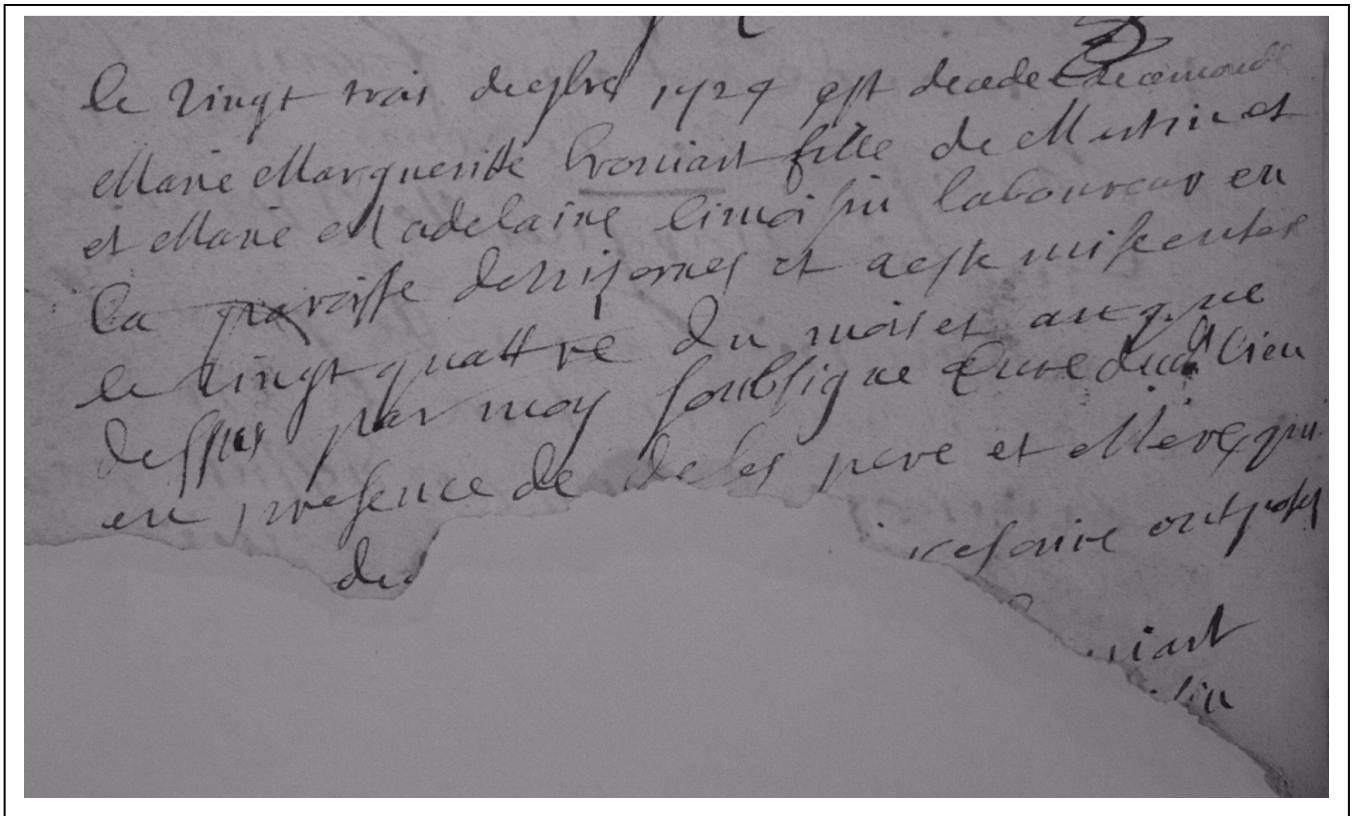 le vingt trois decsbre 1729 est decede
Marie Margueritte brouiart fille de Martin et
et Marie Madelaine limoisin laboureur en
la paroisse et a este mise en ter
le vingt quattre du mois et an que
dessus par moy soubsigne Cure dud lieu
en presence de de ses pere et Mere qui
de
ont
iart
sin